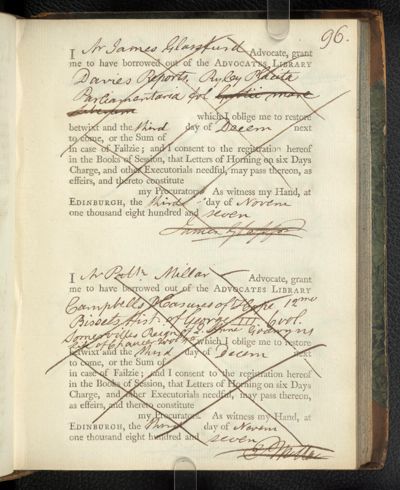 96.
I Mr James Glassfurd Advocate, grant
me to have borrowed out of the ADVOCATES LIBRARY
Davies Reports, Ryley Placita
Parliamentaria fol
which I oblige me to restore
betwixt and the third day of Decem next
to come, or the Sum of
in case of Failzie; and I consent to the registration hereof
in the Books of Session, that Letters of Horning on six Days
Charge, and other Executorials needful, may pass thereon, as
effeirs, and thereto constitute
my Procurators. As witness my Hand, at
EDINBURGH, the third day of Novem
one thousand eight hundred and seven
James Glassfurd
I Mr Robt Millar Advocate, grant
me to have borrowed out of the ADVOCATES LIBRARY
Campbells Pleasures of Hope 12mo
Bissets Hist. of George III 6 vol.
Somervilles Reign of Q. Anne
Life of Chaucer which I oblige me to restore
betwixt and the third day of Decem next
to come, or the Sum of
in case of Failzie; and I consent to the registration hereof
in the Books of Session, that Letters of Horning on six Days
Charge, and other Executorials needful, may pass thereon,
as effeirs, and thereto constitute
my Procurators. As witness my Hand, at
EDINBURGH, the third day of Novem
one thousand eight hundred and seven
R Millar